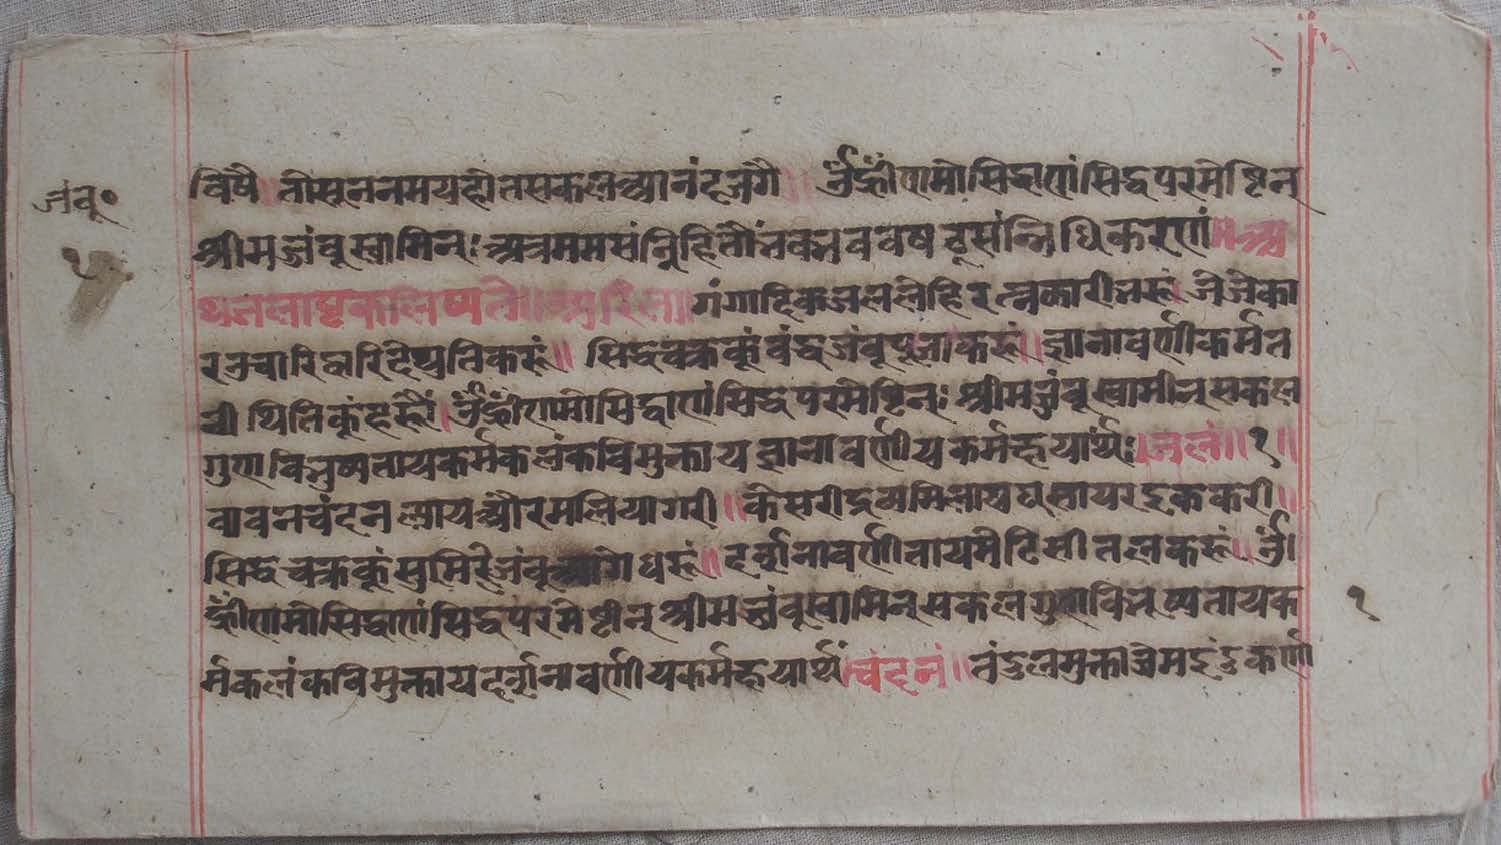 जंबू॰
विषै॥ तीसूननमयहीतसकलआनंदजगै॥ ॐह्रींणमोसिद्धाणंसिद्धपरमेष्टिन्
श्रीमज्जंबूस्वामिन्ः अत्रममसंनिहितौ वषट्सन्निधिकरणं॥अ
थजलाष्टकलिष्यते॥अरिल॥गंगादिकजललेहिरत्नझारीभरूं जेजेका
रउचारिद्वारि सिद्धचक्रकूंवंद्यजंबूपूजाकरूं॥ज्ञानावर्णीकर्मत
नी थितिकूंहरूं॥ॐह्रींणमोसिद्धाणंसिद्धपरमेष्टिन्ः श्रीमज्जंबूस्वामीन्सकल
गुणविभुष्यतायकर्मकलंकविमुक्तायज्ञानावर्णीयकर्मक्षयार्थंः॥जलं॥१॥
बावनचंदनल्यायऔरमलियागरी॥केसरीद्रव्यमिलायघसायरइककरी॥
सिद्धचक्रकूंसुमिरैजंबूआगेधरूं॥दर्शनावर्णीतायमेटिसीतलकरूं॥ॐ
ह्रींणमोसिद्धाणंसिद्धपरमेष्टीन्श्रीमज्जंबूस्वामिन्सकलगुणविभूष्यतायक
१
र्मकलंकविमुक्तायदर्शनावर्णीयकर्मक्षयार्थं॥चंदनं॥तंडुलमुक्ता